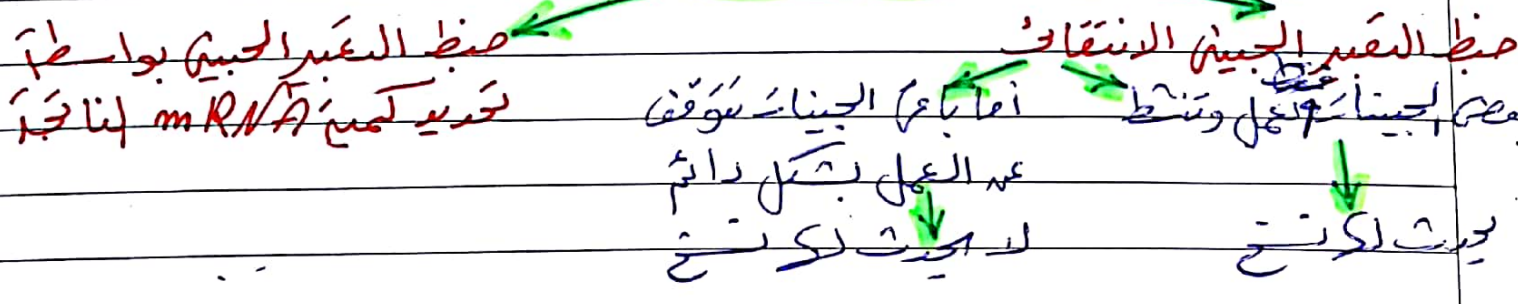 ضبط التعبير الجيني الانتقائي
بعض الجينات فقط تعمل وتنشط
يحدث لها نسخ
أما باقي الجينات تتوقف
عن العمل بشكل دائم
لا يحدث لها نسخ
ضبط التعبير الجيني بواسطة
تحديد كمية mRNA الناتجة